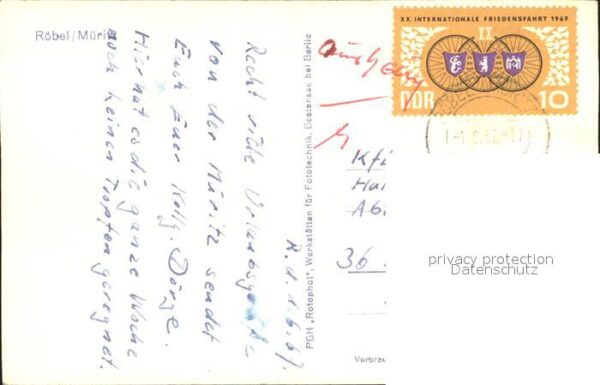 Röbel/Müritz
R. d. 1.6.67.
Recht viele Urlaubsgrüße
von der Müritz sendet
Euch Euer Kollg. Dörge.
Hier hat es die ganze Woche
noch keinen Tropfen geregnet.
PGH „Rotophot“, Werkstätten für Fototechnik, Bestensee bei Berlin
XX. INTERNATIONALE FRIEDENSFAHRT 1967
XX
DDR
10
36
Verbrau
privacy protection
Datenschutz